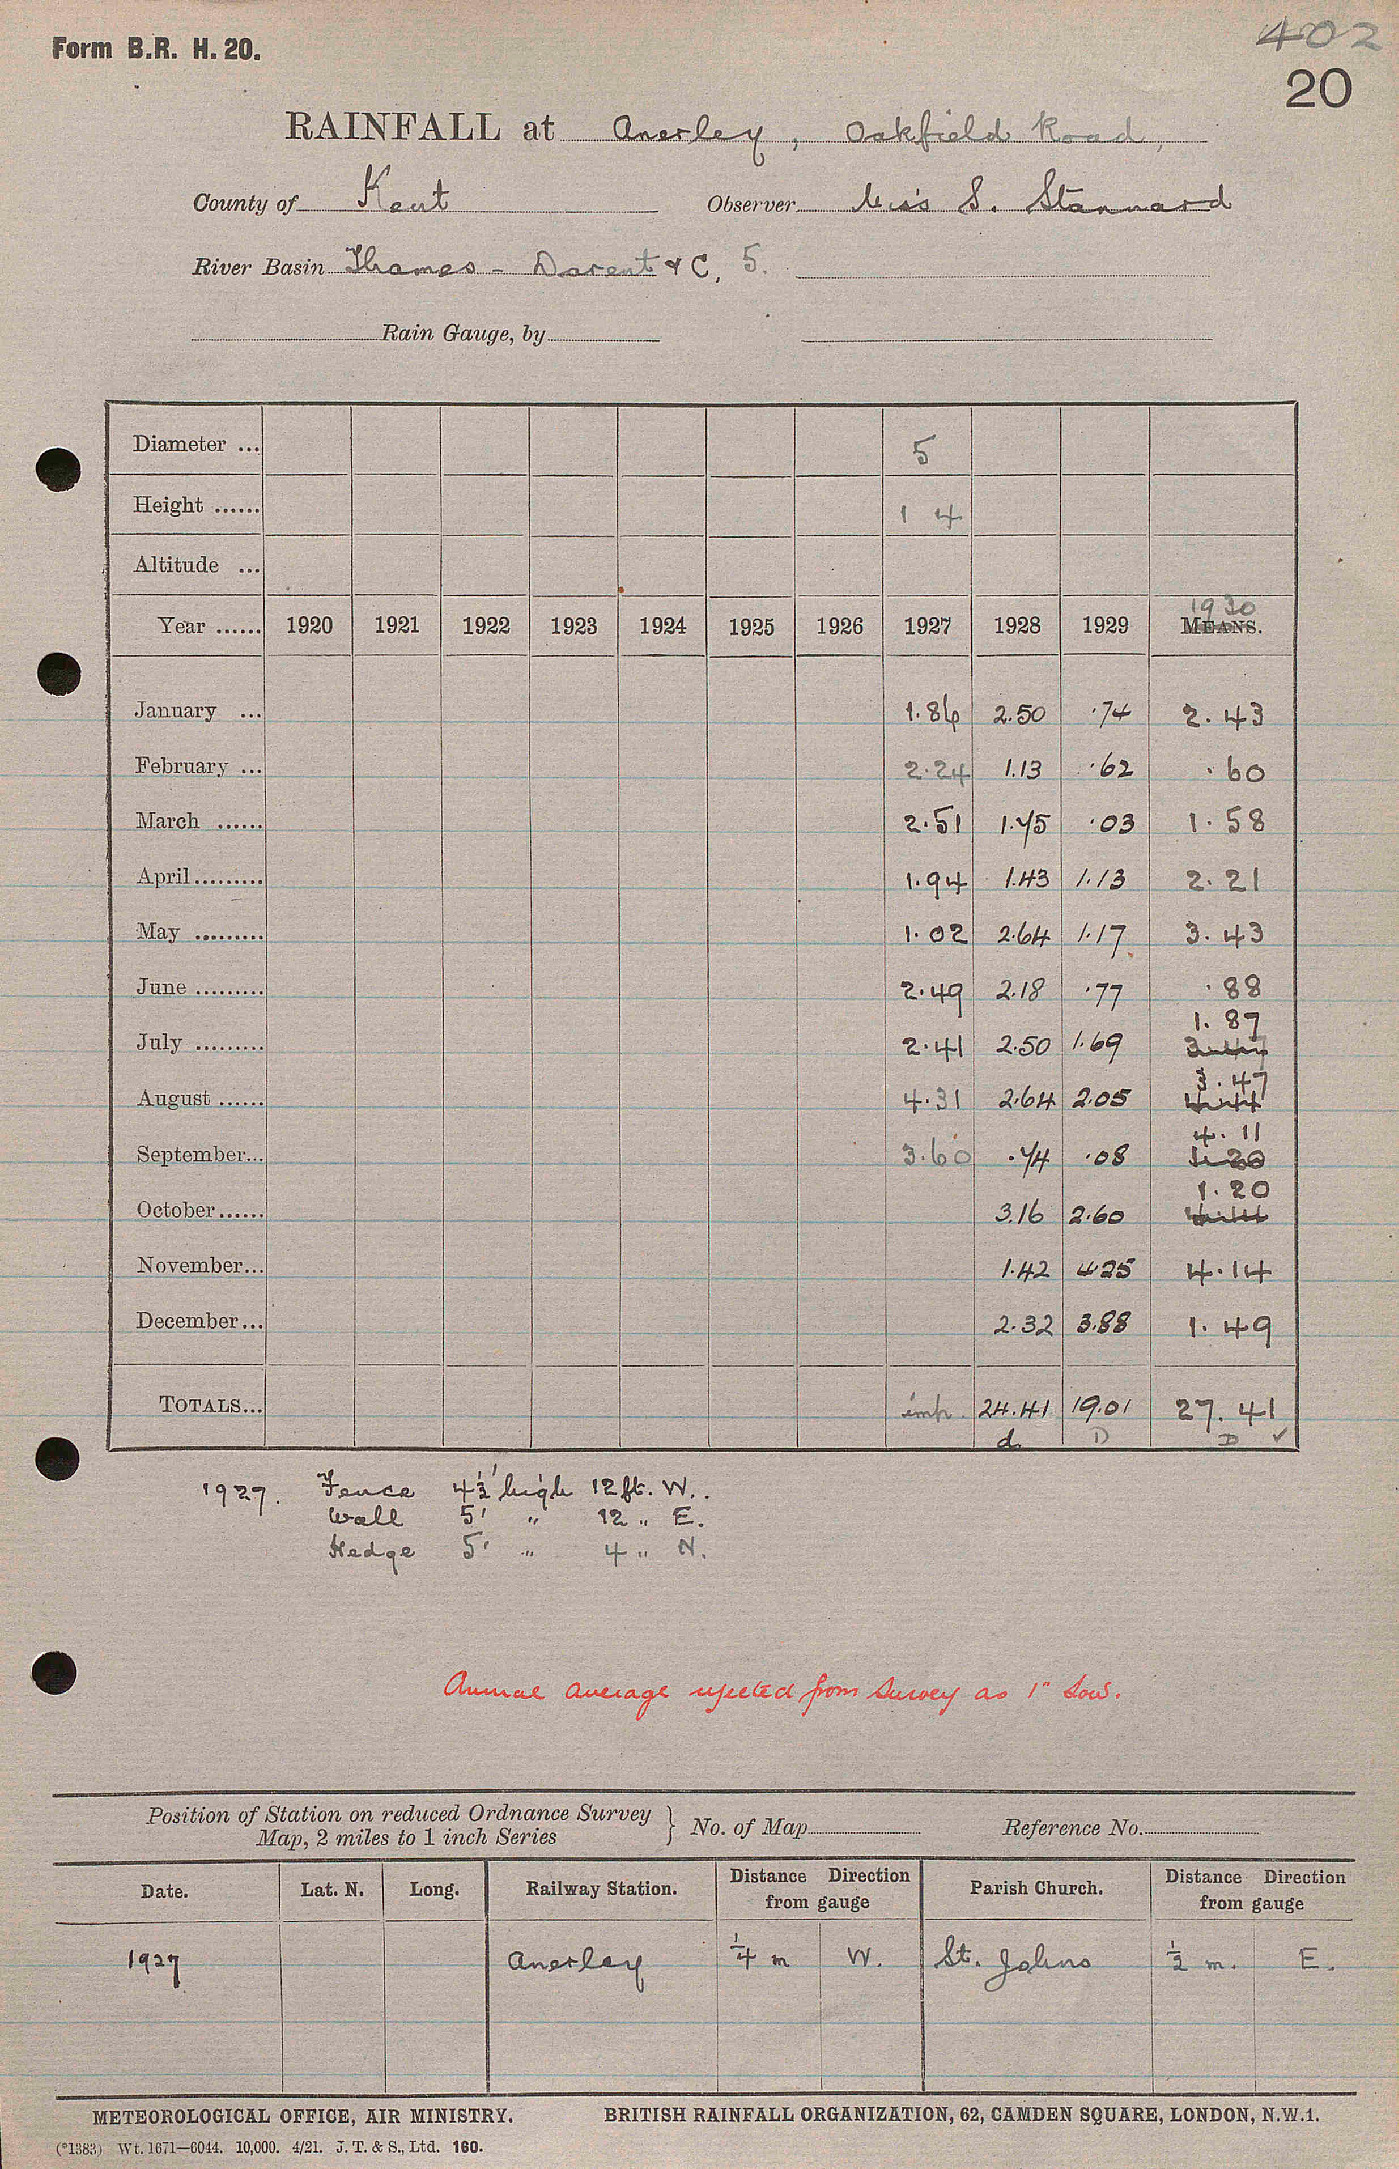 Form B.R. H. 20.
402
20
RAINFALL at Anerley, Oakfield Road,
County of Kent Observer Miss S. Stannard
River Basin Thames - Darent & C, 5.
Rain Gauge, by
Diameter ... 5
Height ...... 1 4
Altitude ...
1930
Year ...... 1920 1921 1922 1923 1924 1925 1926 1927 1928 1929 MEANS.
January ... 1.86 2.50 .74 2.43
February ... 2.24 1.13 .62 .60
March ...... 2.51 1.75 .03 1.58
April......... 1.94 1.43 1.13 2.21
May ......... 1.02 2.64 1.17 3.43
June ......... 2.49 2.18 .77 .88
1.87
July ......... 2.41 2.50 1.69 3.47
3.47
August ...... 4.31 2.64 2.05
4.11
September... 3.60 .74 .08 1.20
1.20
October...... 3.16 2.60
November... 1.42 4.25 4.14
December... 2.32 3.88 1.49
TOTALS... imp. 24.41 19.01 27.41
d D D ✓
1927. Fence 4½' high 12 ft. W.
Wall 5' " 12 " E.
Hedge 5' " 4 " N.
Annual average rejected from Survey as 1" low.
Position of Station on reduced Ordnance Survey
Map, 2 miles to 1 inch Series } No. of Map Reference No.
Date. Lat. N. Long. Railway Station. Distance Direction from gauge Parish Church. Distance Direction from gauge
1927 Anerley ¼ m W. St. Johns ½ m. E.
METEOROLOGICAL OFFICE, AIR MINISTRY. BRITISH RAINFALL ORGANIZATION, 62, CAMDEN SQUARE, LONDON, N.W.1.
(*1383) Wt. 1671—6044. 10,000. 4/21. J. T. & S., Ltd. 160.